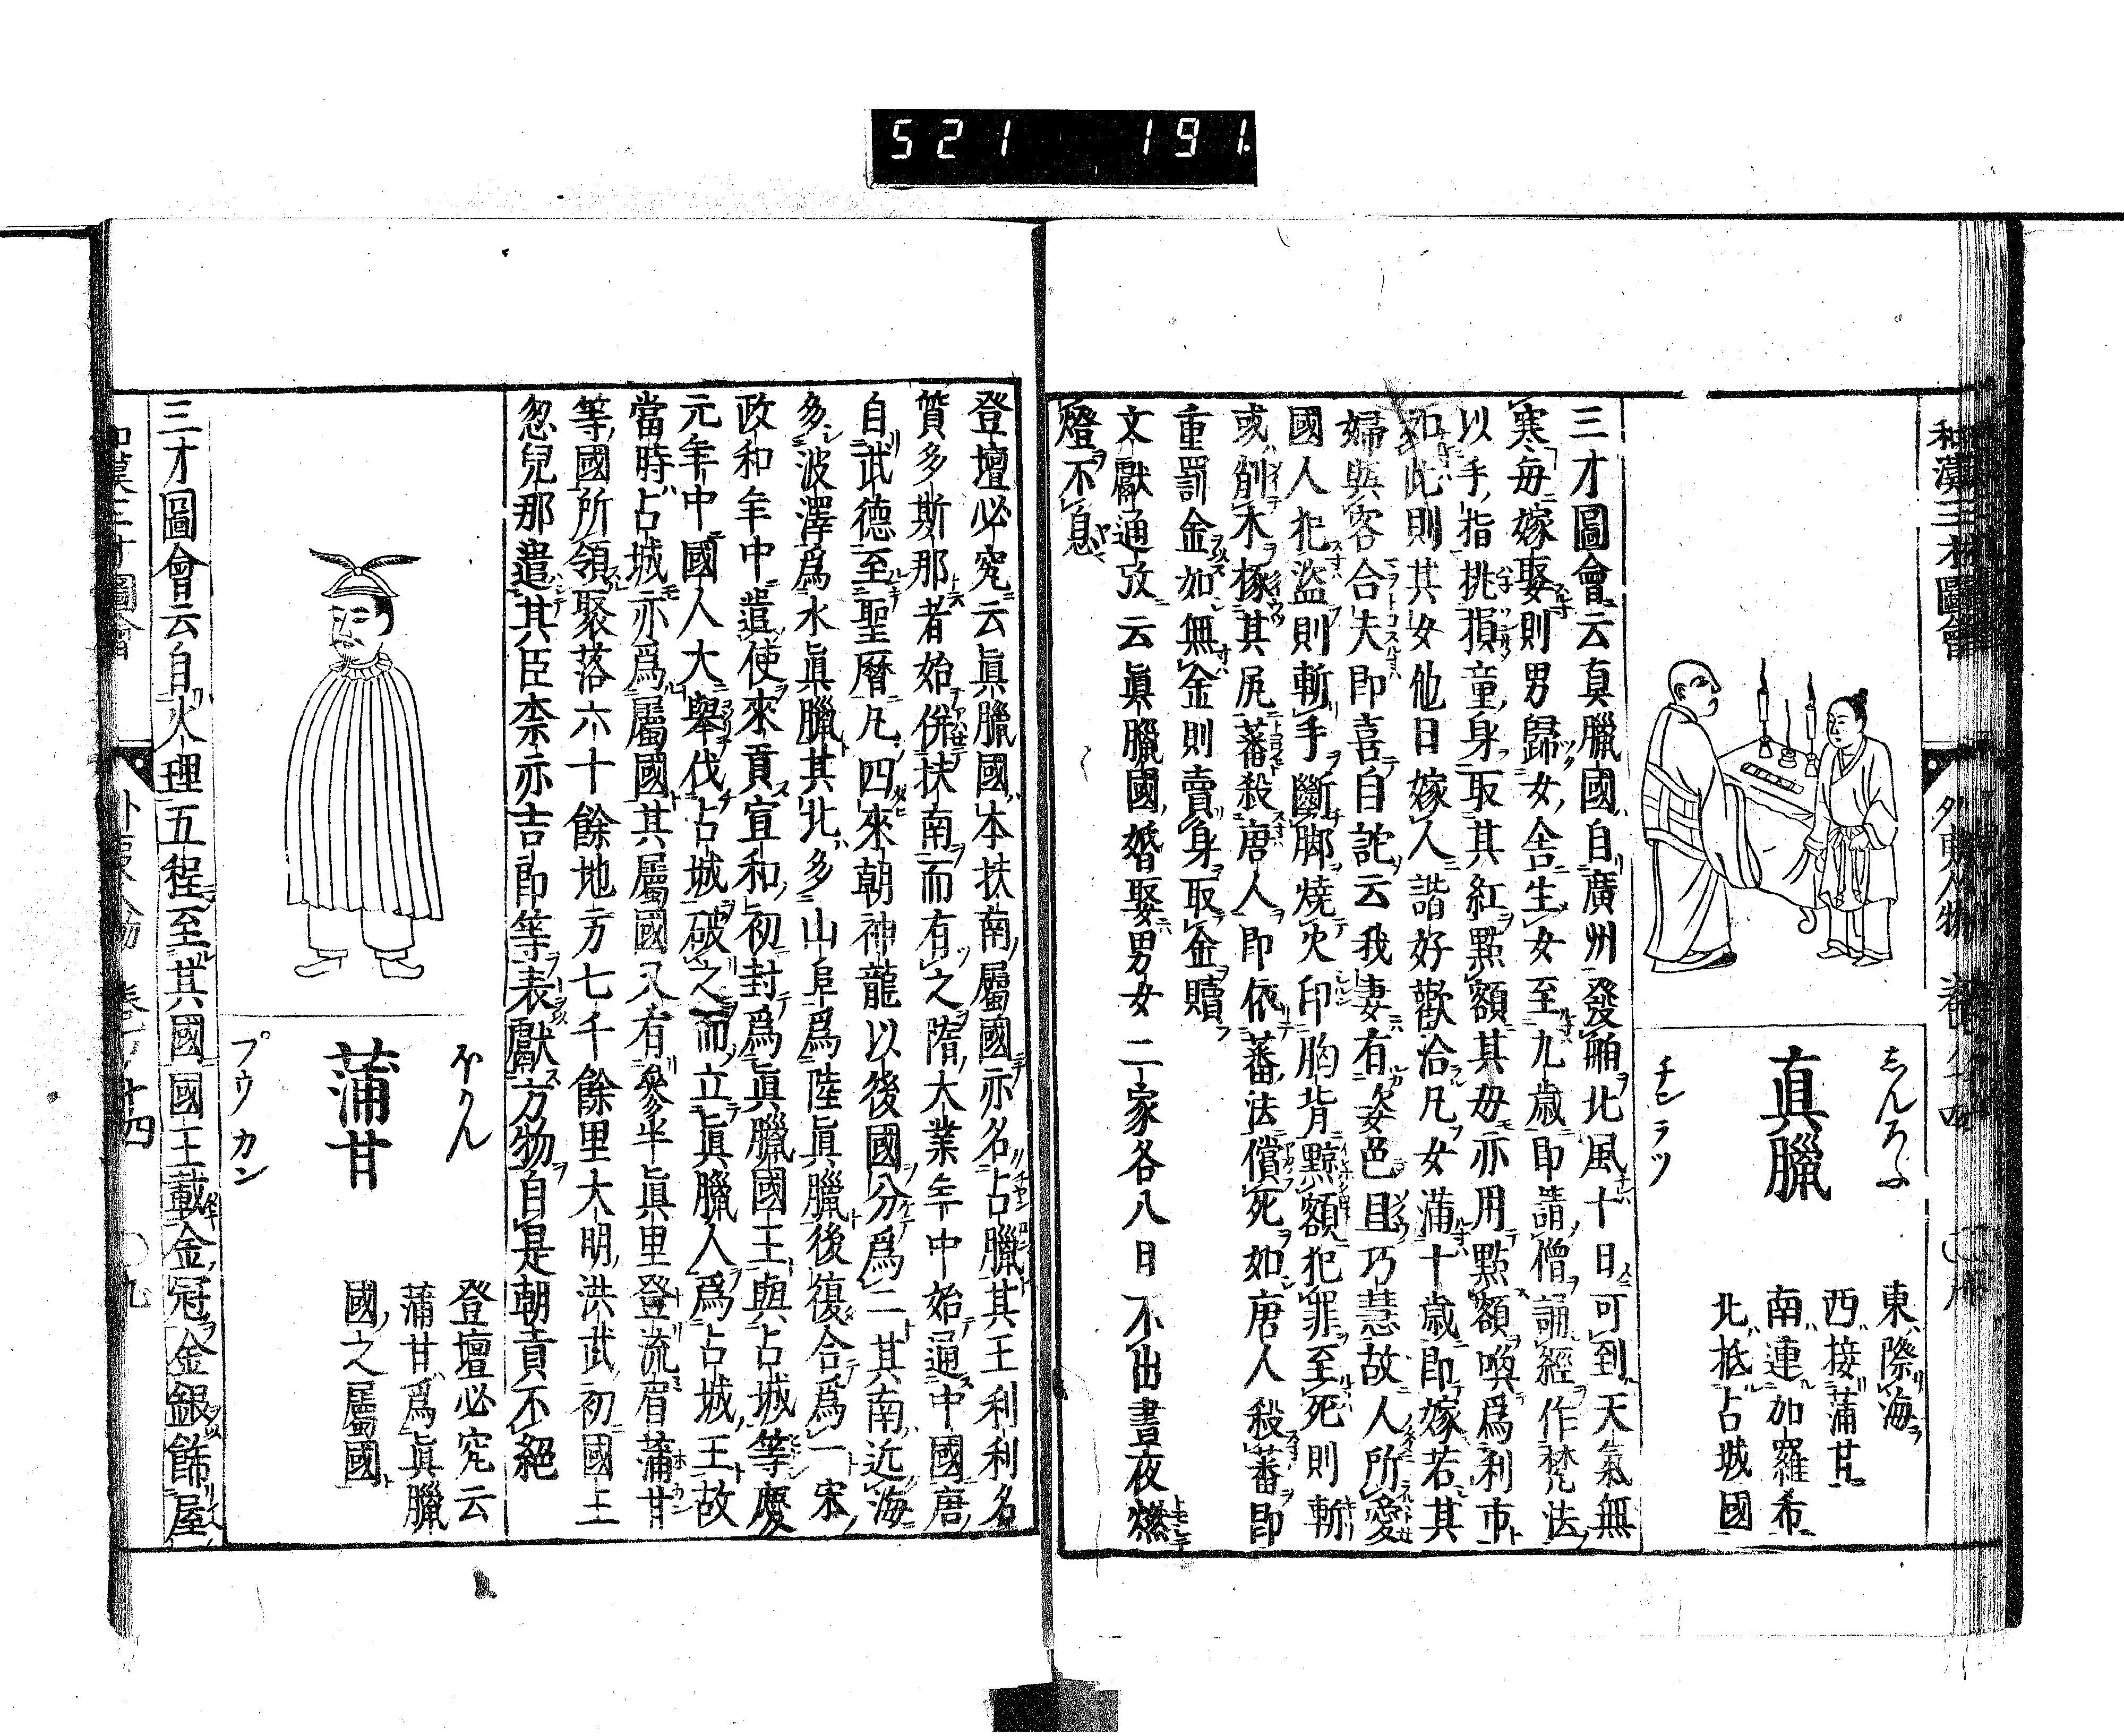 521 191.
和漢三才圖會
外夷人物
しんろふ
真臘
チンラツ
東際海
西接蒲甘
南連加羅希
北抵占城國
三才圖會云真臘國自廣州發舶北風十日可到天氣無
寒毎嫁娶則男歸女舎生女至九歳即請僧誦經作梵法
以手指挑損童身取其紅點額其母亦用點額喚爲利市
如此則其女他日嫁人諧好歡洽凡女蒲十歳即嫁若其
婦與客合夫即喜自詑云我妻有姿色且巧慧故人所愛
國人犯盜則斬手斷脚燒火印胸背黥額犯罪至死則斬
或削木椓其尻蕃殺唐人即依蕃法償死如唐人殺蕃即
重罰金如無金則賣身取金贖
文獻通攷云真臘國婚娶男女二家各八日不出晝夜燃
燈不息
登壇必究云眞臘國本扶南屬國亦名占臘其王利利名
質多斯那者始併扶南而有之隋大業年中始通中國唐
自武德至聖曆凡四來朝神龍以後國分爲二其南近海
多波澤爲水眞臘其北多山阜爲陸眞臘後復合爲一宋
政和年中遣使來貢宣和初封爲眞臘國王與占城等慶
元年中國人大舉伐占城破之而立眞臘人爲占城王故
當時占城亦爲屬國其屬國又有參半眞里登流眉蒲甘
等國所領聚落六十餘地方七千餘里大明洪武初國王
忽兒那遣其臣柰亦吉郎等表獻方物自是朝貢不絕
ほかん
蒲甘
プウカン
登壇必究云
蒲甘爲眞臘
國之屬國
三才圖會云自大理五程至其國國王戴金冠金銀飾屋